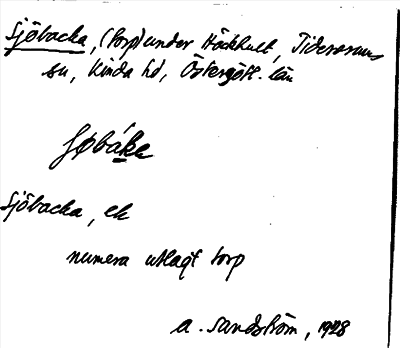 Sjöbacka, (torp) under Höckhult, Tidersrums
sn, Kinda hd, Östergötl. län
Sjöbacka, ek
numera utlagt torp
A. Sandström, 1928